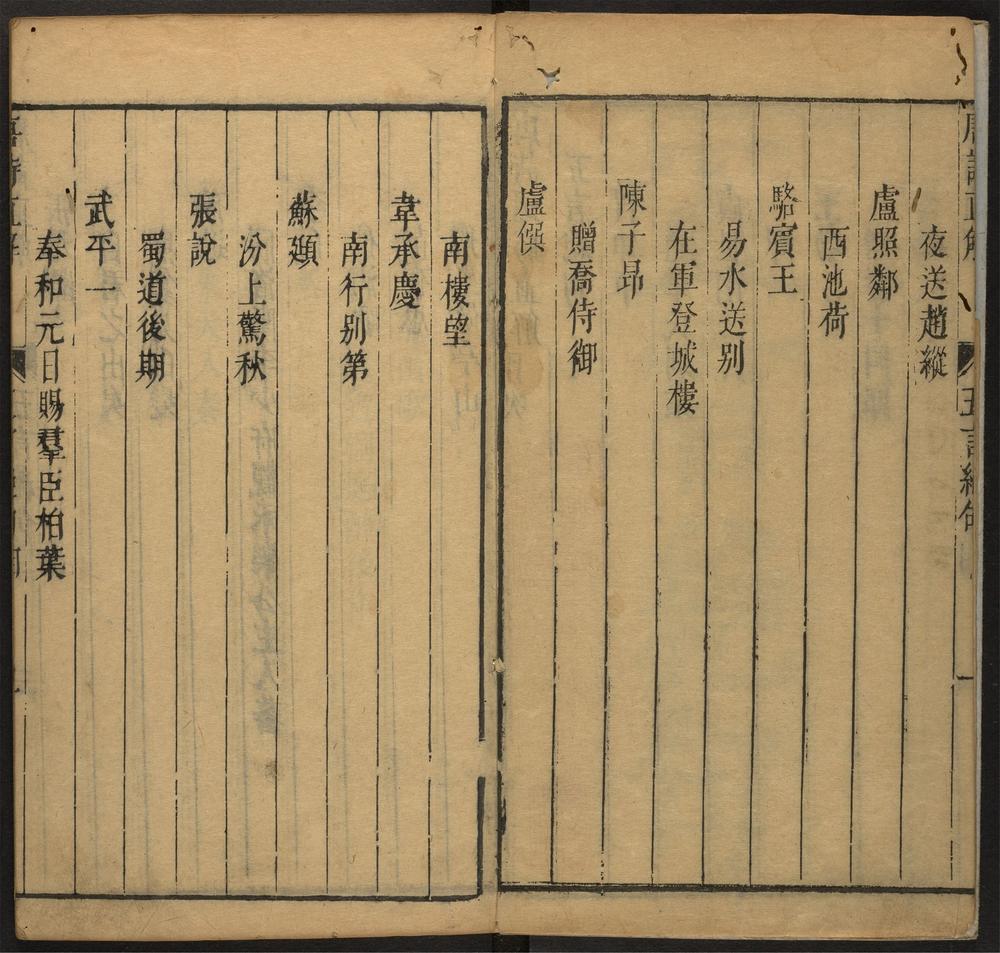 夜送趙縱
盧照鄰
西池荷
駱賓王
易水送别
在軍登城樓
陳子昻
贈喬侍御
盧僎
南樓望
韋承慶
南行别第
蘇頲
汾上驚秋
張說
蜀道後期
武平一
奉和元日賜羣臣柏葉